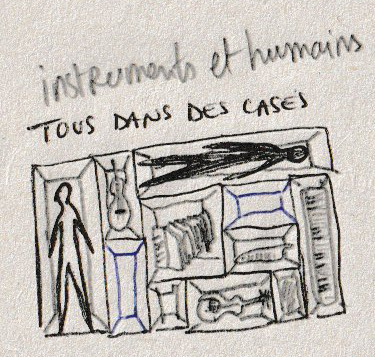 instruments et humains
TOUS DANS DES CASES